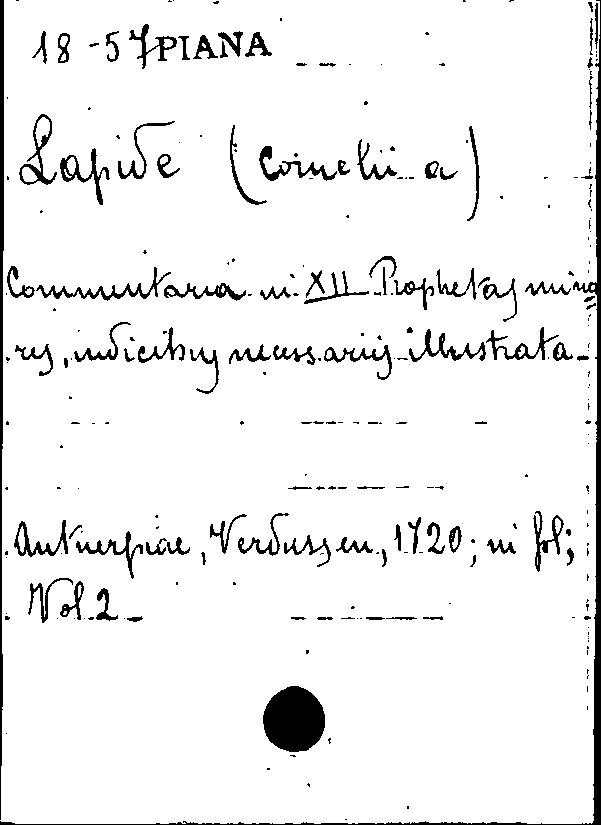 18-57 PIANA
Lapide (Cornelii a)
Commentaria in XII Prophetas mino
res, indicibus necessariis illustrata_
Antuerpiae, Verdussen, 1720; in fol;
Vol 2_